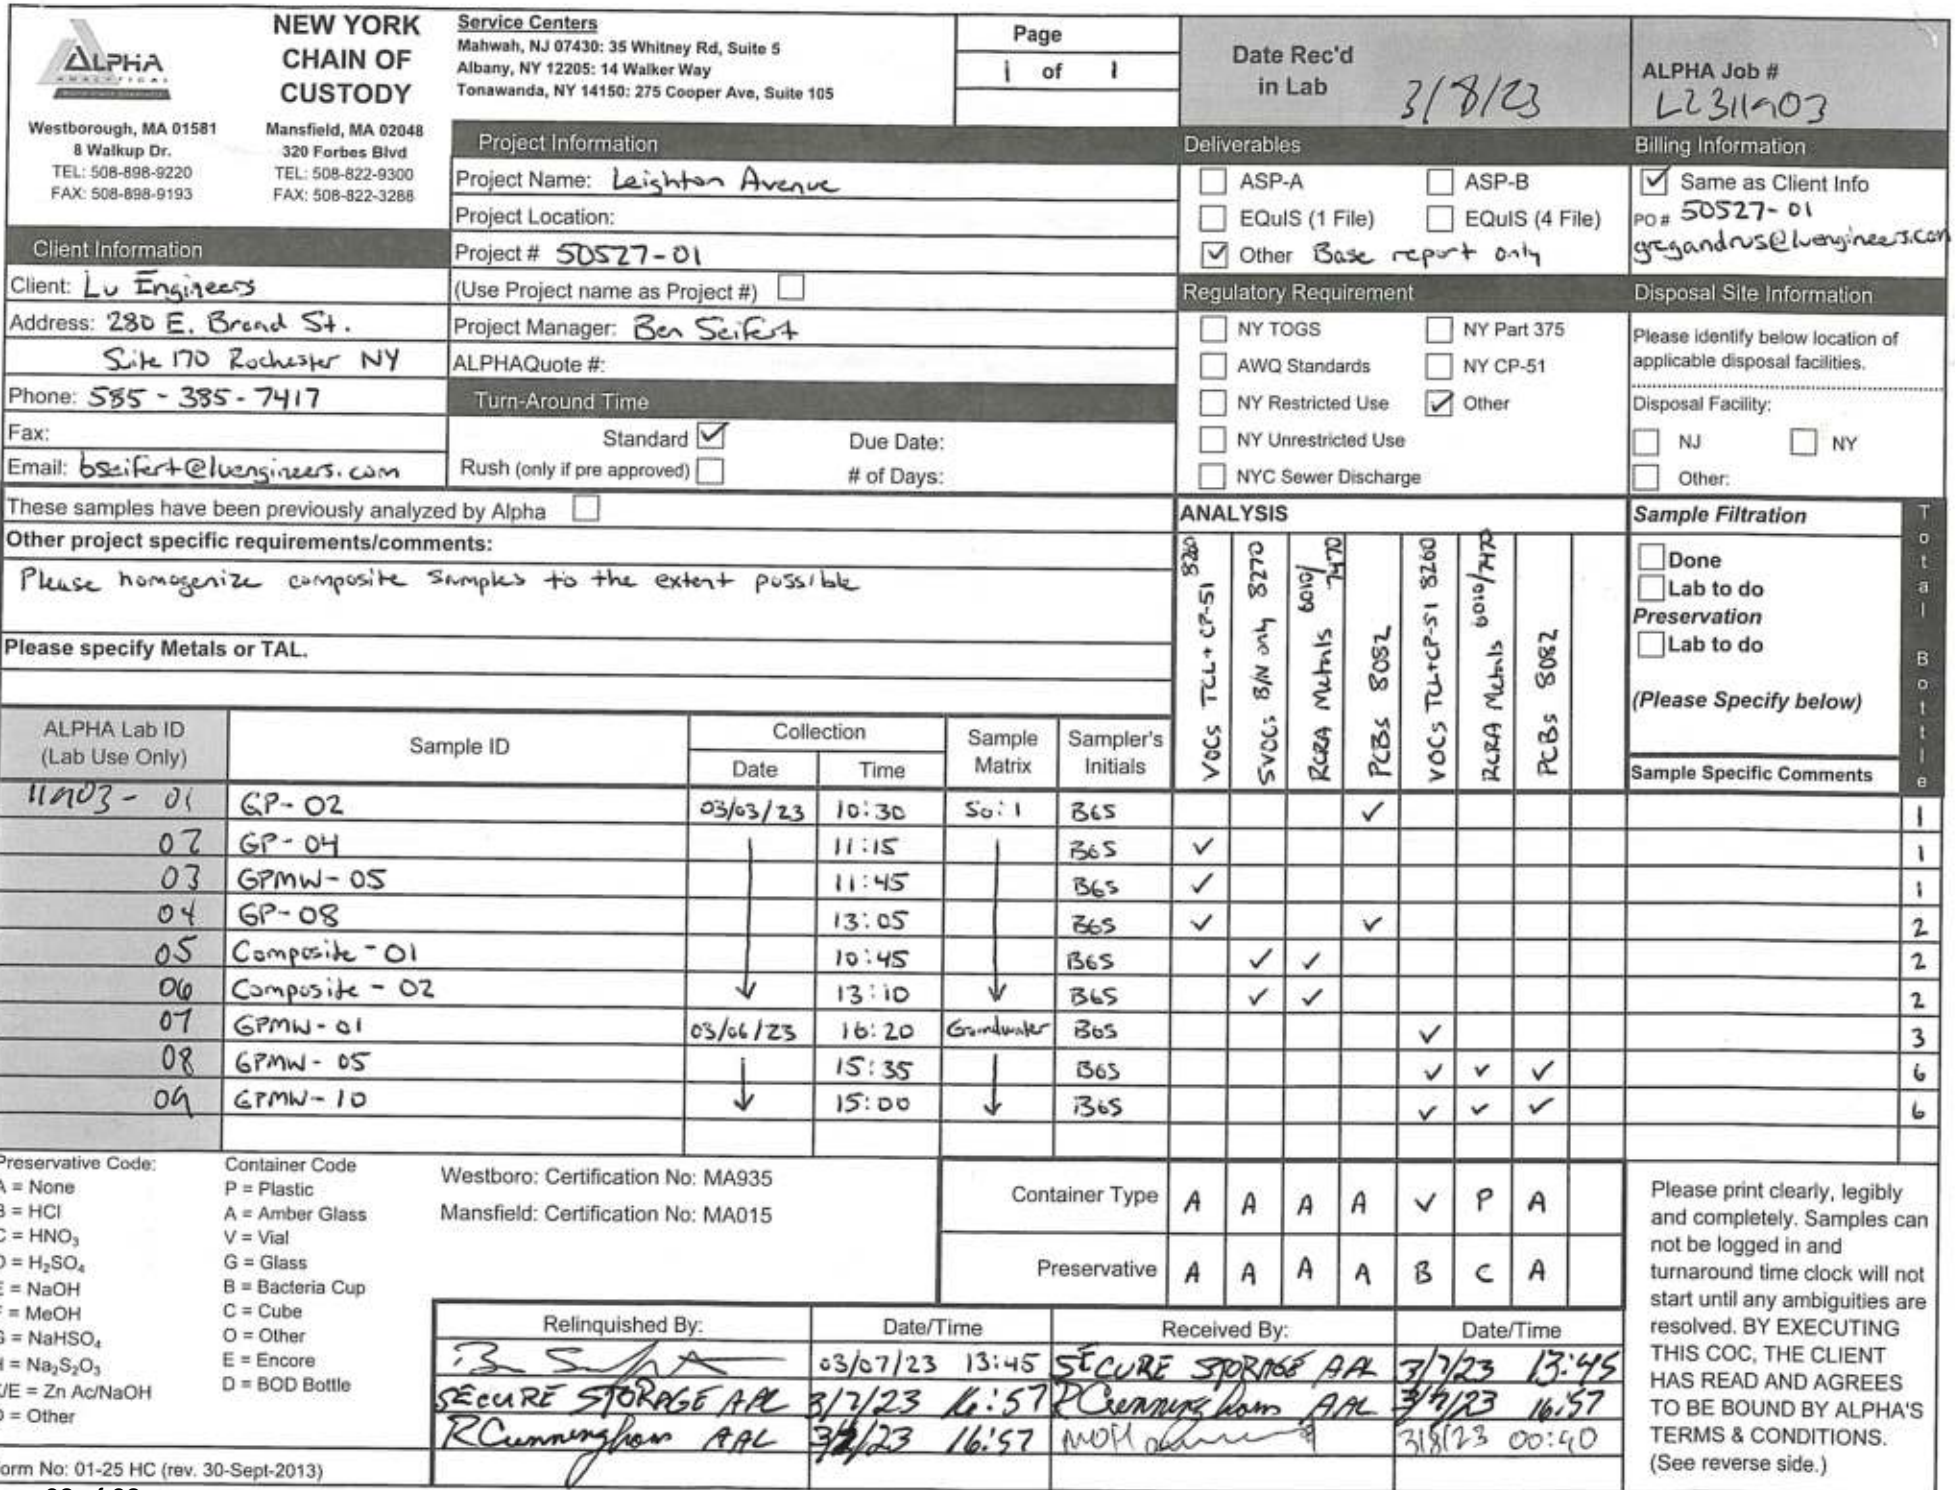 ALPHA
ANALYTICAL
NEW YORK
CHAIN OF
CUSTODY
Westborough, MA 01581
8 Walkup Dr.
TEL: 508-898-9220
FAX: 508-898-9193
Mansfield, MA 02048
320 Forbes Blvd
TEL: 508-822-9300
FAX: 508-822-3288
Service Centers
Mahwah, NJ 07430: 35 Whitney Rd, Suite 5
Albany, NY 12205: 14 Walker Way
Tonawanda, NY 14150: 275 Cooper Ave, Suite 105
Page
1 of 1
Date Rec'd
in Lab 3/8/23
ALPHA Job #
L2311903
Client Information
Client: Lu Engineers
Address: 280 E. Broad St.
Suite 170 Rochester NY
Phone: 585-385-7417
Fax:
Email: bseifert@luengineers.com
Project Information
Project Name: Leighton Avenue
Project Location:
Project # 50527-01
(Use Project name as Project #)
Project Manager: Ben Seifert
ALPHAQuote #:
Turn-Around Time
Standard ✓ Due Date:
Rush (only if pre approved) # of Days:
Deliverables
ASP-A ASP-B
EQuIS (1 File) EQuIS (4 File)
✓ Other Base report only
Regulatory Requirement
NY TOGS NY Part 375
AWQ Standards NY CP-51
NY Restricted Use ✓ Other
NY Unrestricted Use
NYC Sewer Discharge
Billing Information
✓ Same as Client Info
PO # 50527-01
gregandrus@luengineers.com
Disposal Site Information
Please identify below location of
applicable disposal facilities.
Disposal Facility:
NJ NY
Other:
These samples have been previously analyzed by Alpha
Other project specific requirements/comments:
Please homogenize composite samples to the extent possible
Please specify Metals or TAL.
ANALYSIS
VOCs TCL+CP-51 8260
SVOCs B/N only 8270
RCRA Metals 6010/7470
PCBs 8082
VOCs TCL+CP-51 8260
RCRA Metals 6010/7470
PCBs 8082
Sample Filtration
Done
Lab to do
Preservation
Lab to do
(Please Specify below)
Sample Specific Comments
Total Bottle
ALPHA Lab ID
(Lab Use Only)
Sample ID
Collection
Date Time
Sample
Matrix
Sampler's
Initials
11903-01 GP-02 03/03/23 10:30 Soil BGS ✓ 1
02 GP-04 11:15 BGS ✓ 1
03 GPMW-05 11:45 BGS ✓ 1
04 GP-08 13:05 BGS ✓ ✓ 2
05 Composite-01 10:45 BGS ✓ ✓ 2
06 Composite-02 13:10 BGS ✓ ✓ 2
07 GPMW-01 03/06/23 16:20 Groundwater BGS ✓ 3
08 GPMW-05 15:35 BGS ✓ ✓ ✓ 6
09 GPMW-10 15:00 BGS ✓ ✓ ✓ 6
Preservative Code:
A = None
B = HCl
C = HNO3
D = H2SO4
E = NaOH
F = MeOH
G = NaHSO4
H = Na2S2O3
K/E = Zn Ac/NaOH
O = Other
Container Code
P = Plastic
A = Amber Glass
V = Vial
G = Glass
B = Bacteria Cup
C = Cube
O = Other
E = Encore
D = BOD Bottle
Westboro: Certification No: MA935
Mansfield: Certification No: MA015
Container Type A A A A V P A
Preservative A A A A B C A
Relinquished By: Date/Time Received By: Date/Time
03/07/23 13:45 SECURE STORAGE AAL 3/7/23 13:45
SECURE STORAGE AAL 3/7/23 16:57 RCunningham AAL 3/7/23 16:57
RCunningham AAL 3/7/23 16:57 3/8/23 00:40
Please print clearly, legibly
and completely. Samples can
not be logged in and
turnaround time clock will not
start until any ambiguities are
resolved. BY EXECUTING
THIS COC, THE CLIENT
HAS READ AND AGREES
TO BE BOUND BY ALPHA'S
TERMS & CONDITIONS.
(See reverse side.)
Form No: 01-25 HC (rev. 30-Sept-2013)